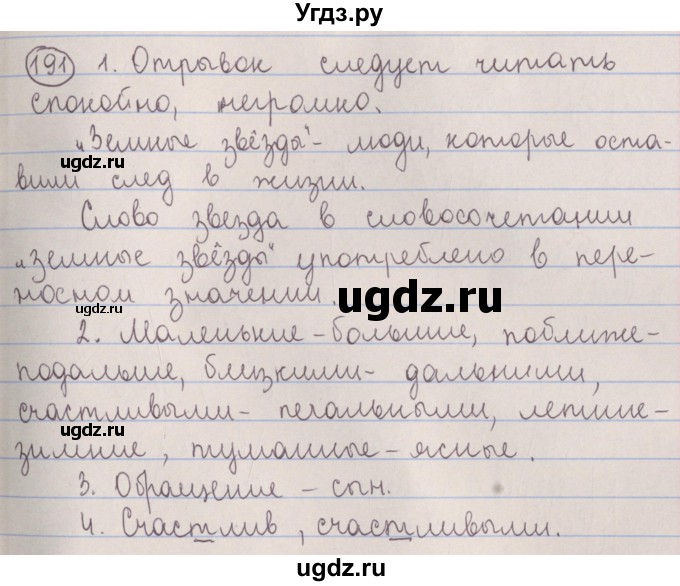 Угдз.ру
191 1. Отрывок следует читать
спокойно, негромко.
„Земные звёзды“- люди, которые оста-
вили след в жизни.
Слово звезда в словосочетании
„земные звёзды“ употреблено в пере-
носном значении.
2. Маленькие - большие, поближе-
подальше, близкими - дальними,
счастливыми - печальными, летние-
зимние, туманные - ясные.
3. Обращение - сын.
4. Счастлив, счастливыми.
ugdz.ru
ugdz.ru
ugdz.ru
ugdz.ru
ugdz.ru
ugdz.ru
ugdz.ru